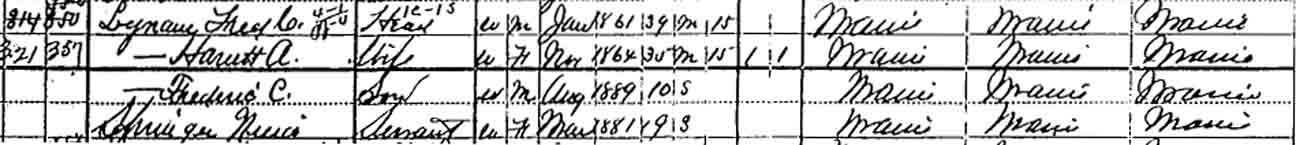 814 350 Lynam Fred C. Head W M Jan 1861 39 M 15 Maine Maine Maine
321 357 — Harriett A. Wife W F Nov 1864 35 M 15 1 1 Maine Maine Maine
— Frederic C. Son W M Aug 1889 10 S Maine Maine Maine
Springer Servant W F Mar 1881 19 S Maine Maine Maine